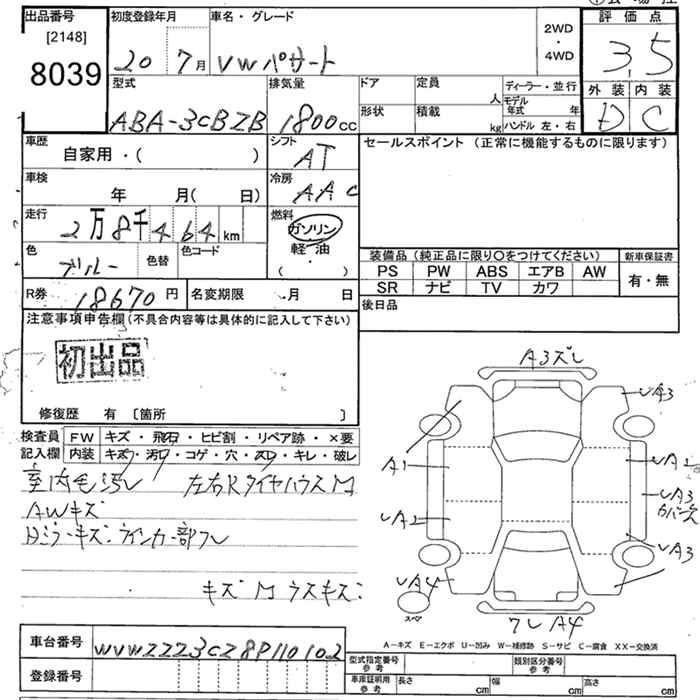 出品番号
[2148]
8039
初度登録年月
20 7月
車名・グレード
VW パサート
2WD
・
4WD
評価点
3.5
型式
ABA-3CBZB
排気量
1800cc
ドア
定員
人
形状
積載
kg
ディーラー・並行
モデル年式 年
ハンドル 左・右
外装 内装
D C
車歴
自家用・( )
シフト
AT
セールスポイント (正常に機能するものに限ります)
車検
年 月( 日)
冷房
AAC
走行
2万8千464km
燃料
ガソリン
軽・油
( ・ )
色
ブルー
色替
色コード
装備品 (純正品に限り○をつけてください)
新車保証書
PS PW ABS エアB AW
SR ナビ TV カワ
有・無
R券
18670円
名変期限 ・月 日
後日品
注意事項申告欄(不具合内容等は具体的に記入して下さい)
初出品
修復歴 有 〔箇所 〕
検査員記入欄
FW キズ・飛石・ヒビ割・リペア跡・×要
内装 キズ・汚れ・コゲ・穴・スレ・キレ・破レ
室内毛汚レ 左右Rタイヤハウス
AWキズ
Dミラーキズ ウインカー部ワレ
キズ ラスキズ
A3ズレ
A3
A1
A2
A4
A3
A3
スペア
ワレA4
A－キズ E－エクボ U－凹み W－補修跡 S－サビ C－腐食 XX－交換済
車台番号
WVWZZZ3CZ8P110102
登録番号
型式指定番号
参考
類別区分番号
参考
車庫証明用
参考
長さ cm
幅 cm
高さ cm